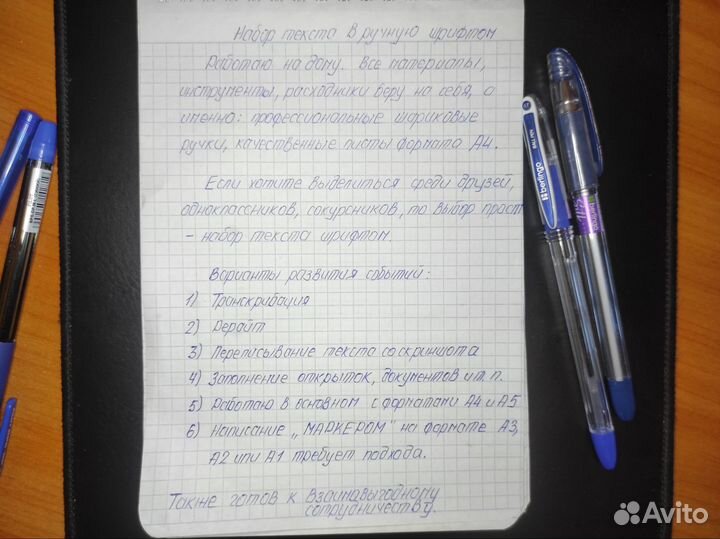 Набор текста в ручную шрифтом
Работаю на дому. Все материалы,
инструменты, расходники беру на себя, а
именно: профессиональные шариковые
ручки, качественные листы формата А4.
Если хотите выделиться среди друзей,
одноклассников, сокурсников, то выбор прост
- набор текста шрифтом.
Варианты развития событий:
1) Транскрибация
2) Рерайт
3) Переписывание текста со скриншота
4) Заполнение открыток, документов и т. п.
5) Работаю в основном с форматами А4 и А5
6) Написание „МАРКЕРОМ" на формате А3,
А2 или А1 требует подхода.
Также готов к взаимовыгодному
сотрудничеству.
berlingo
Avito